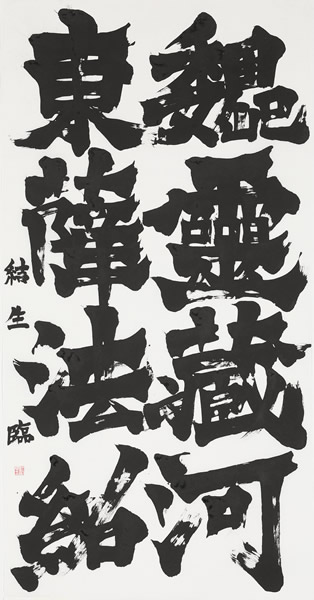 魏靈藏河
東薛法紹
結生臨